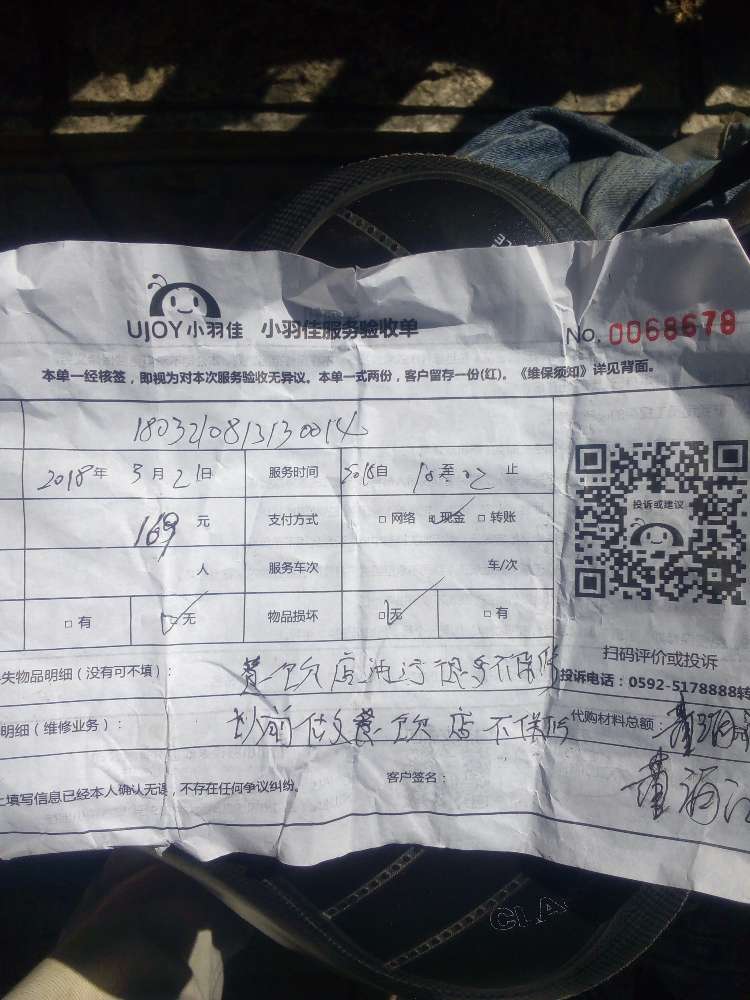 UJOY小羽佳 小羽佳服务验收单 No. 0068678
本单一经核签，即视为对本次服务验收无异议。本单一式两份，客户留存一份(红)。《维保须知》详见背面。
1803210813130014
2018年 3月21日 服务时间 2018自 10至 22 止
169元 支付方式 □网络 □现金 □转账
人 服务车次 车/次
□有 □无 物品损坏 □无 □有
投诉或建议
扫码评价或投诉
投诉电话：0592-5178888转
失物品明细（没有可不填）： 餐饮店油污很多不保修
明细（维修业务）： 以前做餐饮店不保修
代购材料总额：
客户签名：
上填写信息已经本人确认无误，不存在任何争议纠纷。
CLA